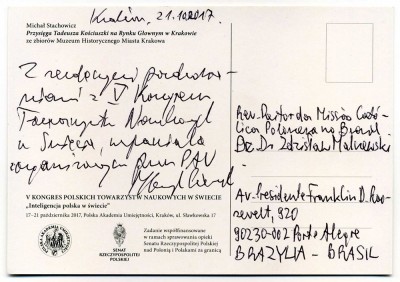 Kraków, 21.10.2017.
Michał Stachowicz
Przysięga Tadeusza Kościuszki na Rynku Głównym w Krakowie
ze zbiorów Muzeum Historycznego Miasta Krakowa
Z serdecznymi pozdrowie-
niami z V Kongresu
Towarzystw Naukowych
w Świecie,
zorganizowanym przez PAU
Rev. Pastor da Missão Cató-
lica Polonesa no Brasil
Dr. Zdzisław Malczewski
Av. Presidente Franklin D. Roo-
sevelt, 920
90230-002 Porto Alegre
BRAZYLIA - BRASIL
V KONGRES POLSKICH TOWARZYSTW NAUKOWYCH W ŚWIECIE
„Inteligencja polska w świecie"
17-21 października 2017, Polska Akademia Umiejętności, Kraków, ul. Sławkowska 17
POLSKA AKADEMIA UMIEJĘTNOŚCI
SENAT
RZECZYPOSPOLITEJ
POLSKIEJ
Zadanie współfinansowane
w ramach sprawowania opieki
Senatu Rzeczypospolitej Polskiej
nad Polonią i Polakami za granicą